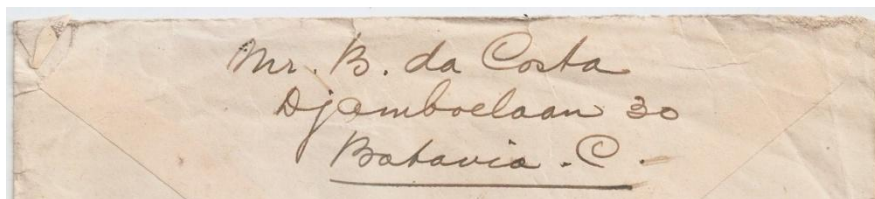 Mr. B. da Costa
Djamboelaan 30
Batavia. C.